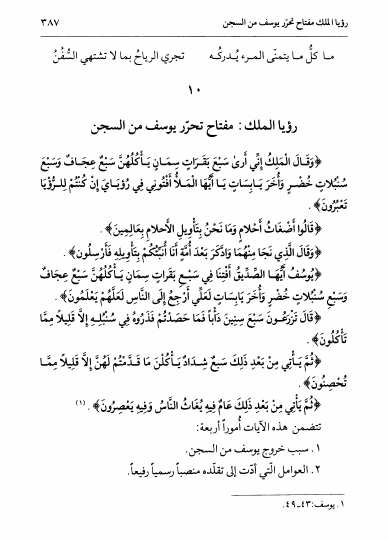 رؤيا الملك مفتاح تحرّر يوسف من السجن ٣٨٧
ما كلُّ ما يتمنّى المرء يُدركُه تجري الرياحُ بما لا تشتهي السُّفُنُ
١٠
رؤيا الملك : مفتاح تحرّر يوسف من السجن
﴿وَقَالَ الْمَلِكُ إِنِّي أَرىٰ سَبْعَ بَقَرَاتٍ سِمَانٍ يَـأْكُلُهُنَّ سَبْعٌ عِجَافٌ وَسَبْعَ
سُنْبُلاتٍ خُضْرٍ وَأُخَرَ يَابِسَاتٍ يَا أَيُّهَا الْمَلأُ أَفْتُونِي فِي رُؤيَايَ إِنْ كُنْتُمْ لِلرُّؤْيَا
تَعْبُرُونَ﴾.
﴿قَالُوا أَضْغَاثُ أَحْلامٍ وَمَا نَحْنُ بِتَأْوِيلِ الأَحلامِ بِعَالِمِينَ﴾.
﴿وَقَالَ الَّذِي نَجَا مِنْهُمَا وَادَّكَرَ بَعْدَ أُمَّةٍ أَنَا أُنَبِّئُكُمْ بِتَأْوِيلِهِ فَأَرْسِلُونِ﴾.
﴿يُوسُفُ أَيُّهَا الصِّدِّيقُ أَفْتِنَا فِي سَبْعِ بَقَرَاتٍ سِمَانٍ يَأْكُلُهُنَّ سَبْعٌ عِجَافٌ
وَسَبْعِ سُنْبُلاتٍ خُضْرٍ وَأُخَرَ يَابِسَاتٍ لَعَلِّي أَرْجِعُ إِلَى النَّاسِ لَعَلَّهُمْ يَعْلَمُونَ﴾.
﴿قَالَ تَزْرَعُونَ سَبْعَ سِنِينَ دَأَباً فَمَا حَصَدْتُمْ فَذَرُوهُ فِي سُنْبُلِهِ إِلَّا قَلِيلاً مِمَّا
تَأْكُلُونَ﴾.
﴿ثُمَّ يَأْتِي مِنْ بَعْدِ ذَلِكَ سَبعٌ شِدَادٌ يَأْكُلْنَ مَا قَدَّمْتُمْ لَهُنَّ إِلَّا قَلِيلاً مِمَّـا
تُحْصِنُونَ﴾.
﴿ثُمَّ يَأْتِي مِنْ بَعْدِ ذَلِكَ عَامٌ فِيهِ يُغَاثُ النَّاسُ وَفِيهِ يَعْصِرُونَ﴾. (١)
تتضمن هذه الآيات أُموراً أربعة:
١. سبب خروج يوسف من السجن.
٢. العوامل الّتي أدّت إلى تقلّده منصباً رسمياً رفيعاً.
١. يوسف:٤٣-٤٩.